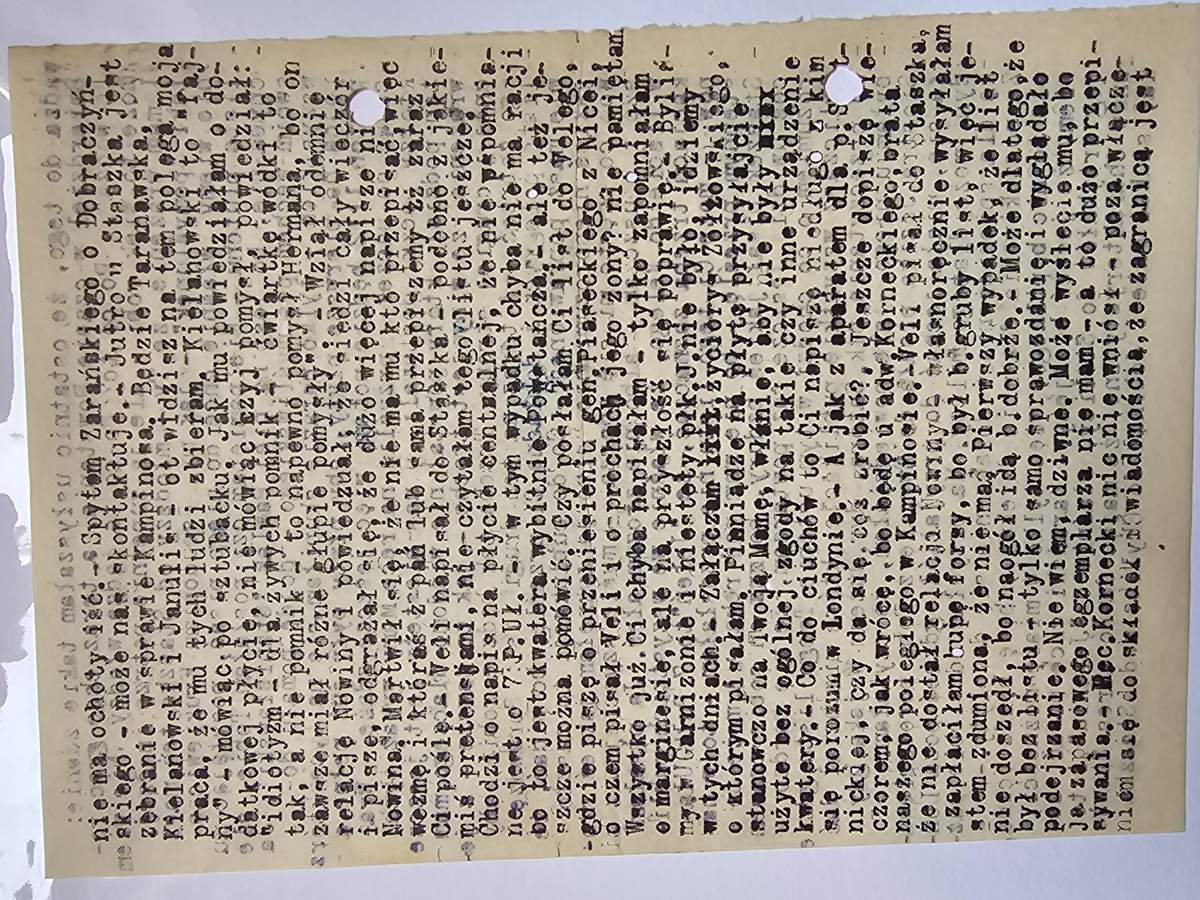 nie ma ochoty iść.- Spytam Zarańskiego o Dobraczyń-
skiego - może nas skontaktuje.- Jutro u Staszka jest
zebranie w sprawie Kampinosa. Będzie Taranowska,
Kielanowski i Janulis - ot widzisz na tem polega moja
praca, że mu tych ludzi zbieram. Kielanowski to "faj-
ny" - mówiąc po sztubacku. Jak mu powiedziałam o do-
datkowej płycie, nie mówiąc czyj pomysł, powiedział:
"idiotyzm - dla żywych pomnik - ćwiartkę wódki to
tak, a nie pomnik - to napewno pomysł Hermana, bo on
zawsze miał różne głupie pomysły" - Wziął odemnie
relację Nowiny i powiedział, że siedzi cały wieczór
i pisze, odgrażał się, że dużo więcej napisze niż
Nowina. Martwił się, że nie ma mu kto przepisać, więc
wezmę i któraś z pań lub sama przepiszemy i zaraz
Ci poślę.- Veli napisał do Staszka - podobno z jakie-
miś pretensjami, nie czytałam tego listu jeszcze.
Chodzi o napis na płycie centralnej, że nie wspomnia-
ne jest o 7.P.Uł. - w tym wypadku chyba nie ma racji
bo to jest kwatera wybitnie Powstańcza,- ale też je-
szcze można pomówić.- Czy posłałam Ci list do Velego,
gdzie piszę o przeniesieniu gen. Piaseckiego z Nicei,
o czem pisał Veli i o prochach jego żony? nie pamiętam
Wszystko już Ci chyba napisałam - tylko zapomniałam
o marginesie, ale na przyszłość się poprawię.- Byliś-
my w Garnizonie i niestety płk J. nie było, idziemy
w tych dniach.- Załączam życiorys Żółtowskiego,
o którym pisałam. Pieniądze na płytę przysyłajcie
stanowczo na Twoją Mamę, właśnie, aby nie były xxxx
użyte bez ogólnej zgody na takie czy inne urządzenie
kwatery.- Co do ciuchów to Ci napiszę niedługo z kim
się porozum w Londynie.- A jak z aparatem dla p.
nickiej, czy da się coś zrobić?. Jeszcze dopiszę wie-
czorem, jak wrócę, bo będę u adw. Korneckiego, brata
naszego poległego w Kampinosie.- Veli pisał do Staszka,
że nie dostał relacji - własnoręcznie wysyłałam
zapłaciłam kupę forsy, bo był b.gruby list, więc je-
stem zdumiona, że nie ma, Pierwszy wypadek, że list
nie doszedł, bo naogół idą b.dobrze.- Może dlatego, że
było bez listu - tylko samo sprawozdanie i wyglądało
podejrzanie. Nie wiem, dziwne. Może wyślecie mu, bo
ja zapasowego egzemplarza nie mam - a to dużo przepi-
sywania.- Mec. Kornecki nic nie wniósł - poza włącze-
niem się do składek i wiadomością, że zagranicą jest